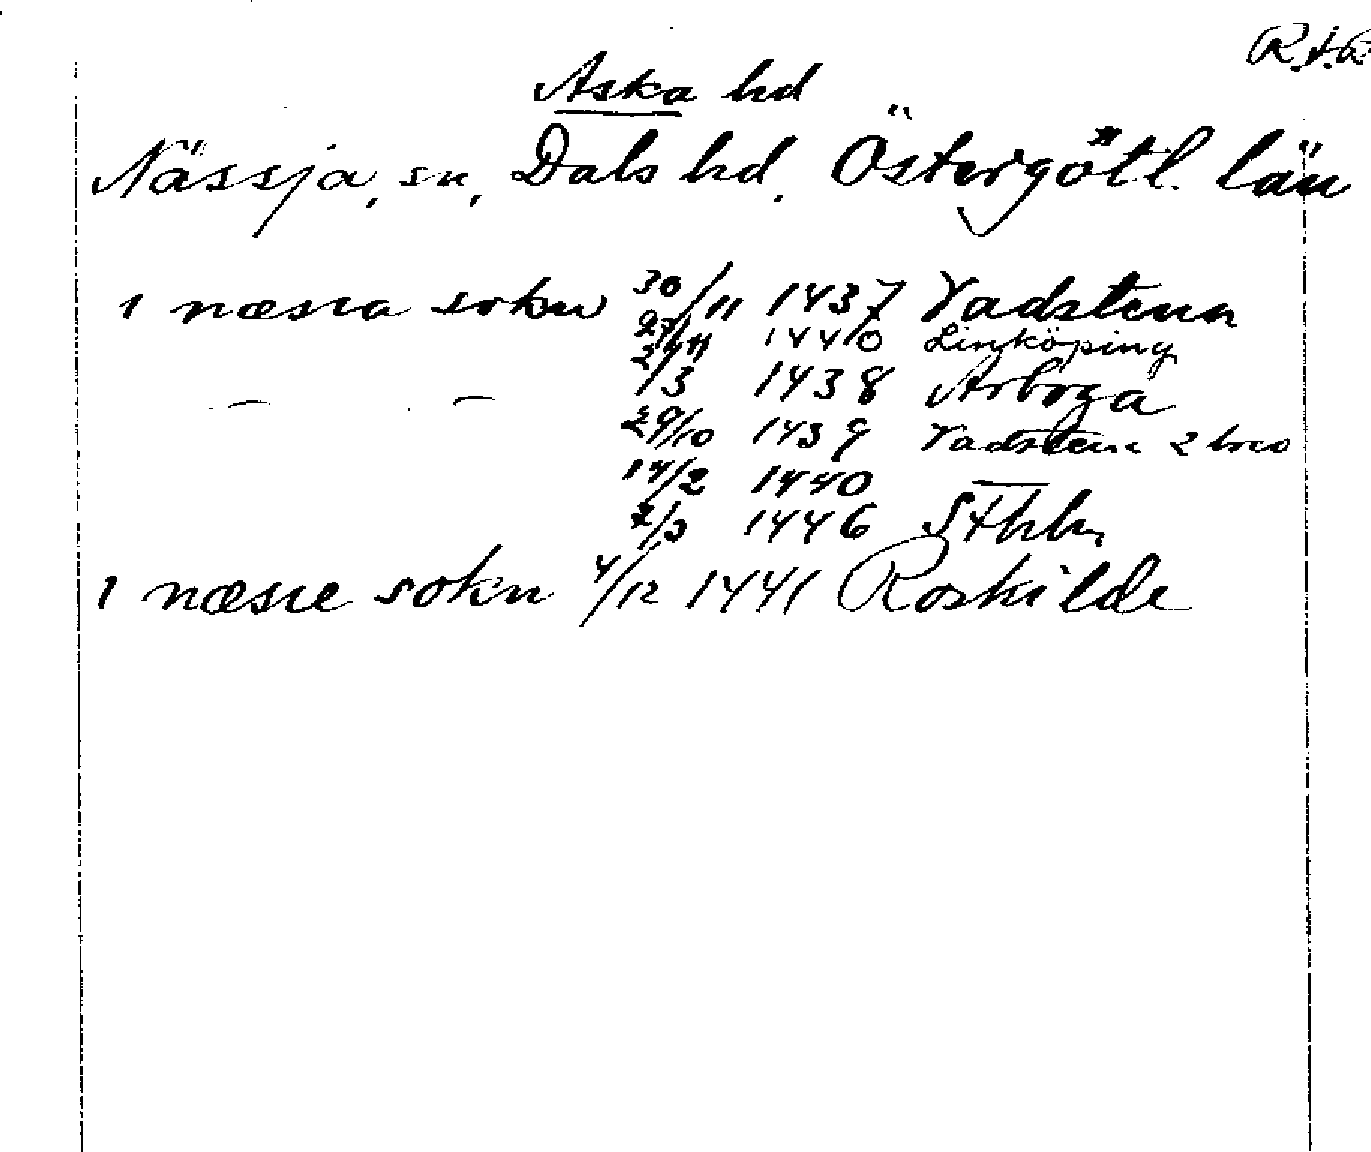 R.A.
Aska hd
Nässja, sn, Dals hd. Östergötl. län
i næsia sokn 30/11 1437 Vadstena
27/11 1440 Linköping
/3 1438 Arboga
— — 29/10 1439 Vadstena 2 brev
14/2 1440 —
2/3 1446 Sthlm
i næsie sokn 4/12 1441 Roskilde